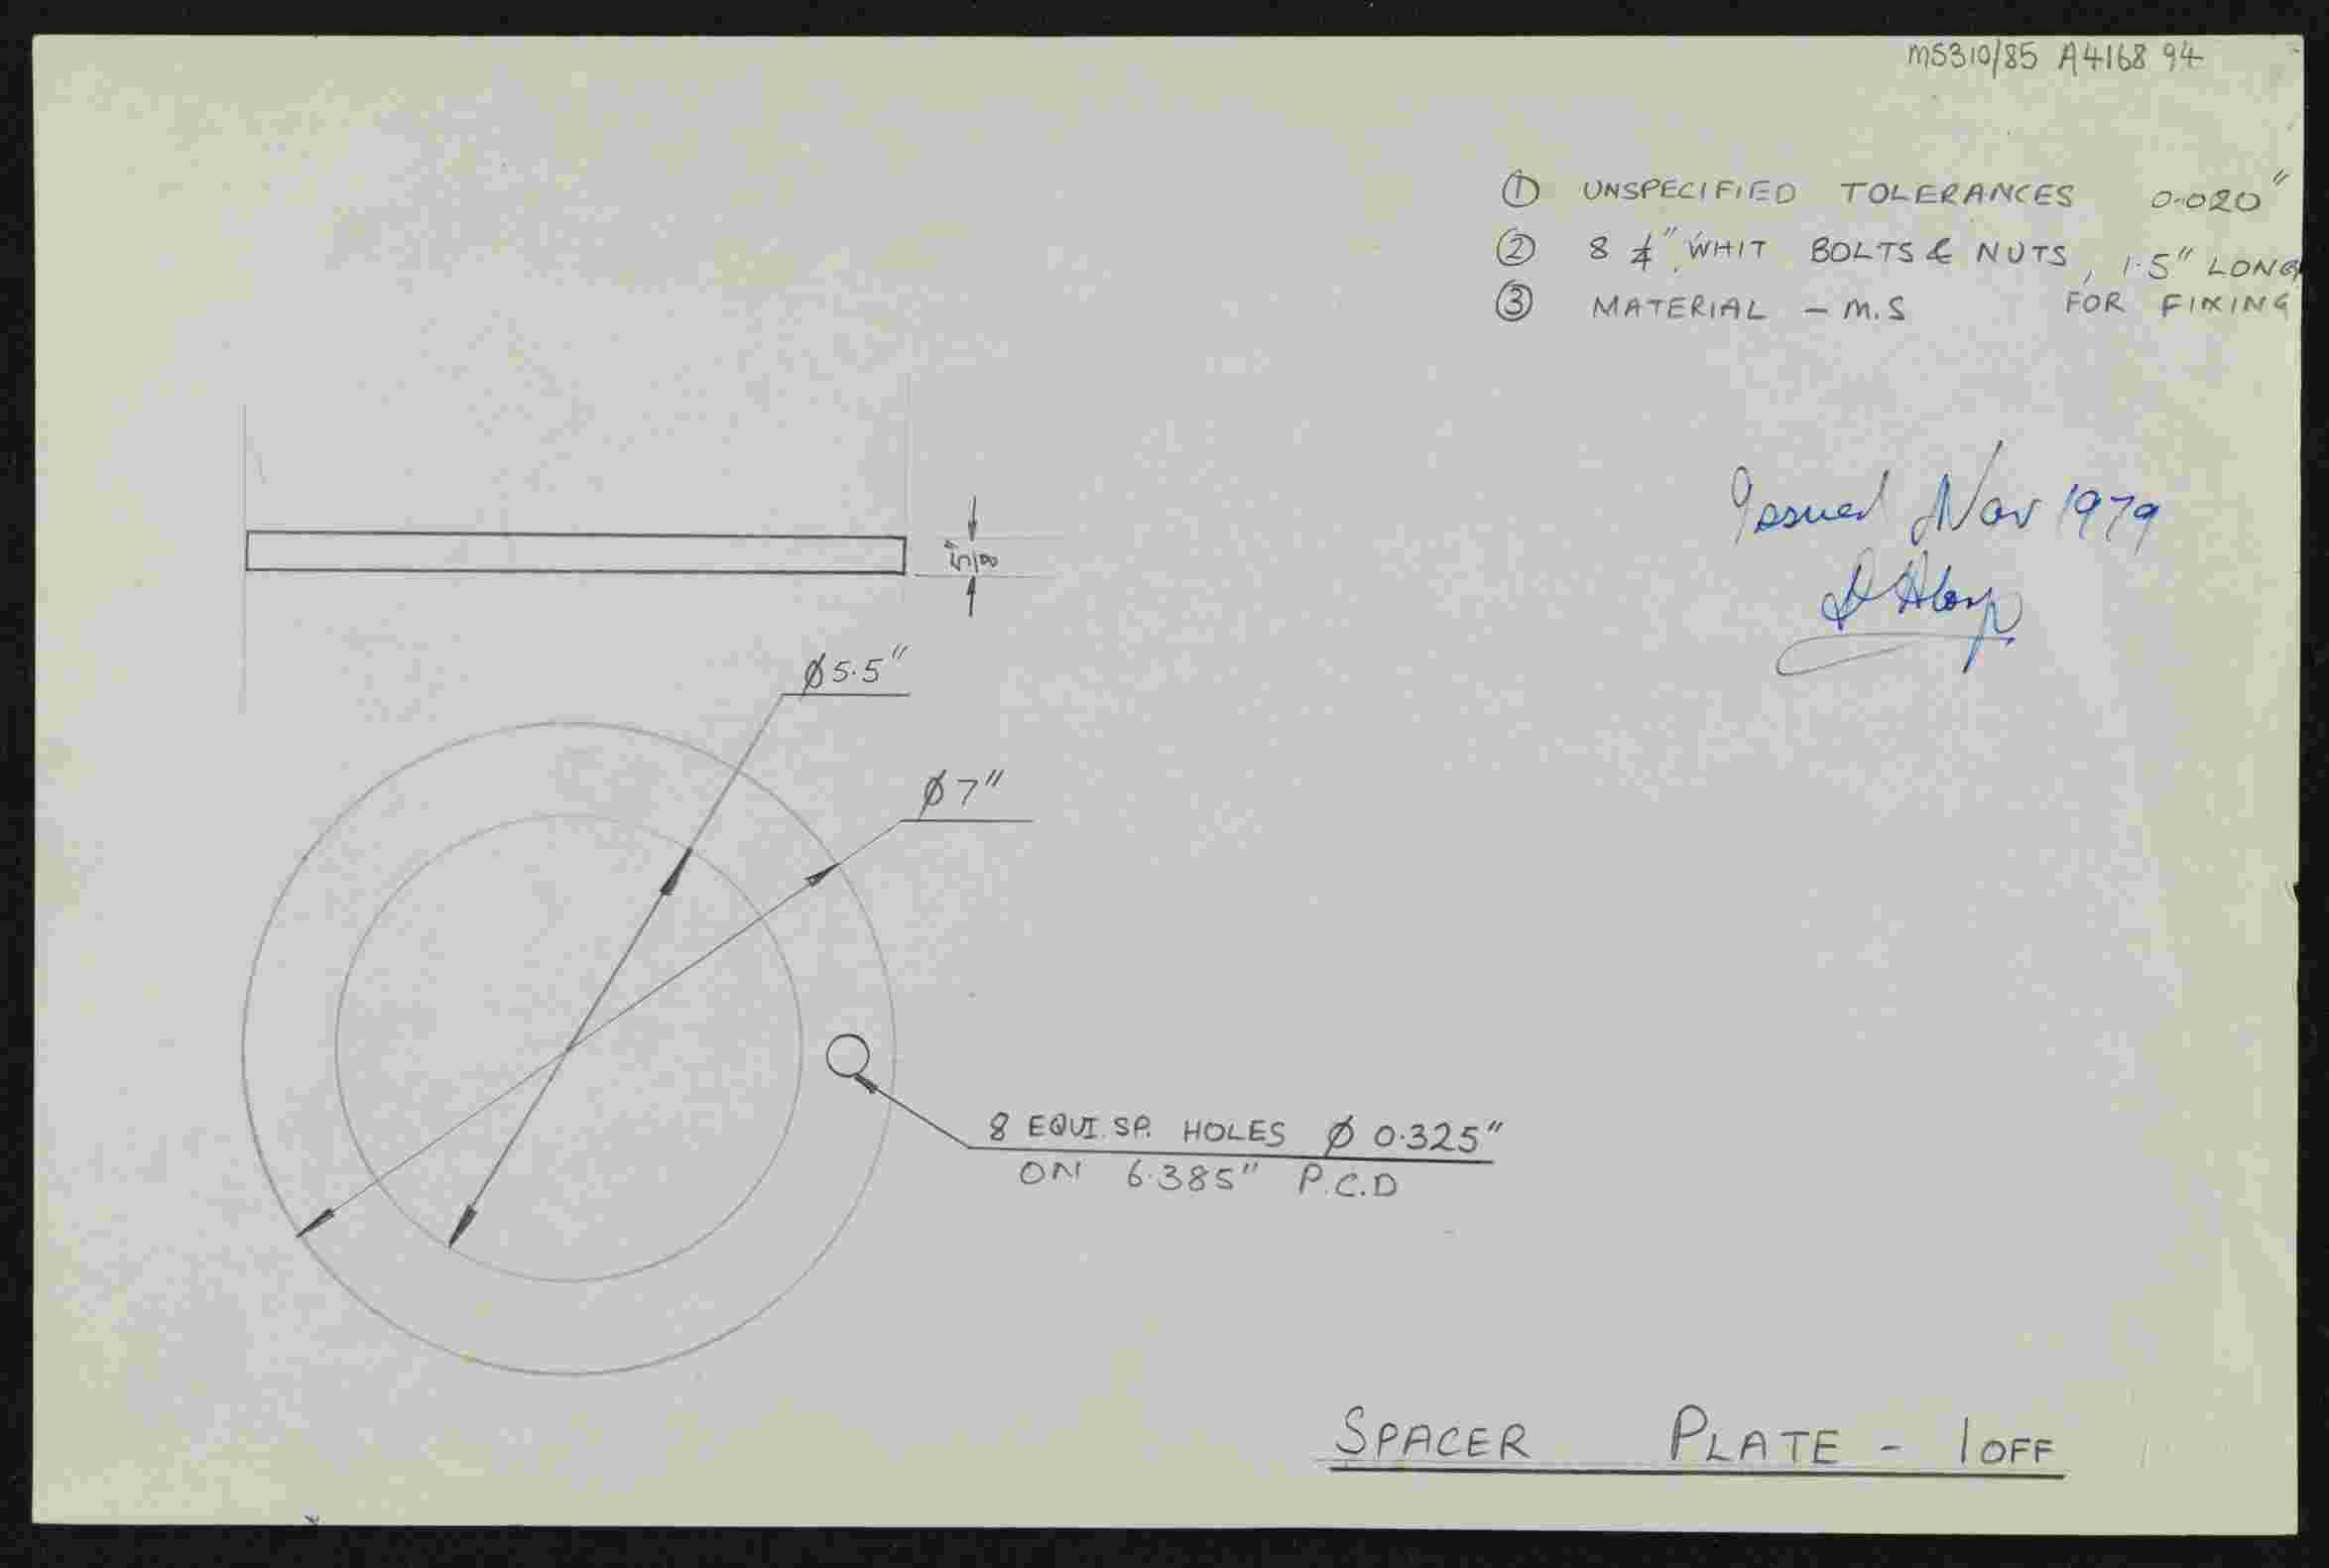 MS310/85 A4168 94
① UNSPECIFIED TOLERANCES 0.020"
② 8 ¼" WHIT BOLTS & NUTS, 1.5" LONG
FOR FIXING
③ MATERIAL - M.S
Issued Nov 1979
5/8"
Ø5.5"
Ø7"
8 EQUI. SP. HOLES Ø 0.325"
ON 6.385" P.C.D
SPACER PLATE - 1 OFF